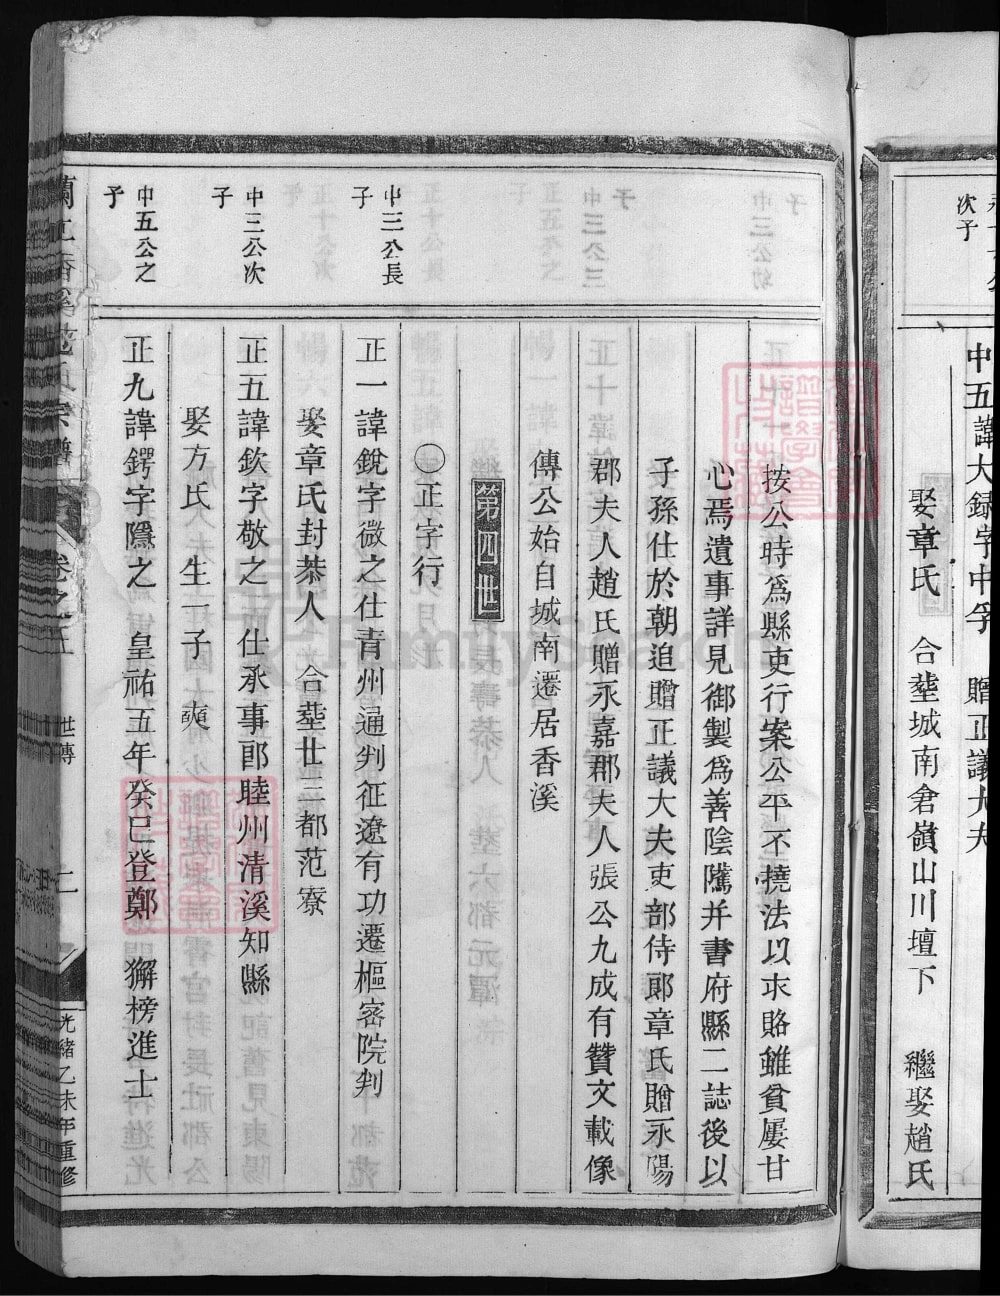 次子
中五諱大録字中孚　贈正議大夫
娶章氏　合塟城南倉嶺山川壇下　繼娶趙氏
按公時為縣吏行案公平不撓法以求賂雖貧屢甘
心焉遺事詳見御製為善陰隲并書府縣二誌後以
子孫仕於朝追贈正議大夫吏部侍郎章氏贈永陽
郡夫人趙氏贈永嘉郡夫人張公九成有贊文載像
傳公始自城南遷居香溪
第四世
〇正字行
中三公長子
正一諱銳字微之仕青州通判征遼有功遷樞密院判
娶章氏封恭人　合塟廿三都范寮
中三公次子
正五諱欽字敬之　仕承事郎睦州清溪知縣
娶方氏　生一子　奭
中五公之子
正九諱鍔字隱之　皇祐五年癸巳登鄭　獬榜進士
蘭江香溪范氏宗譜　卷之五　世傳　二　光緒乙未年重修